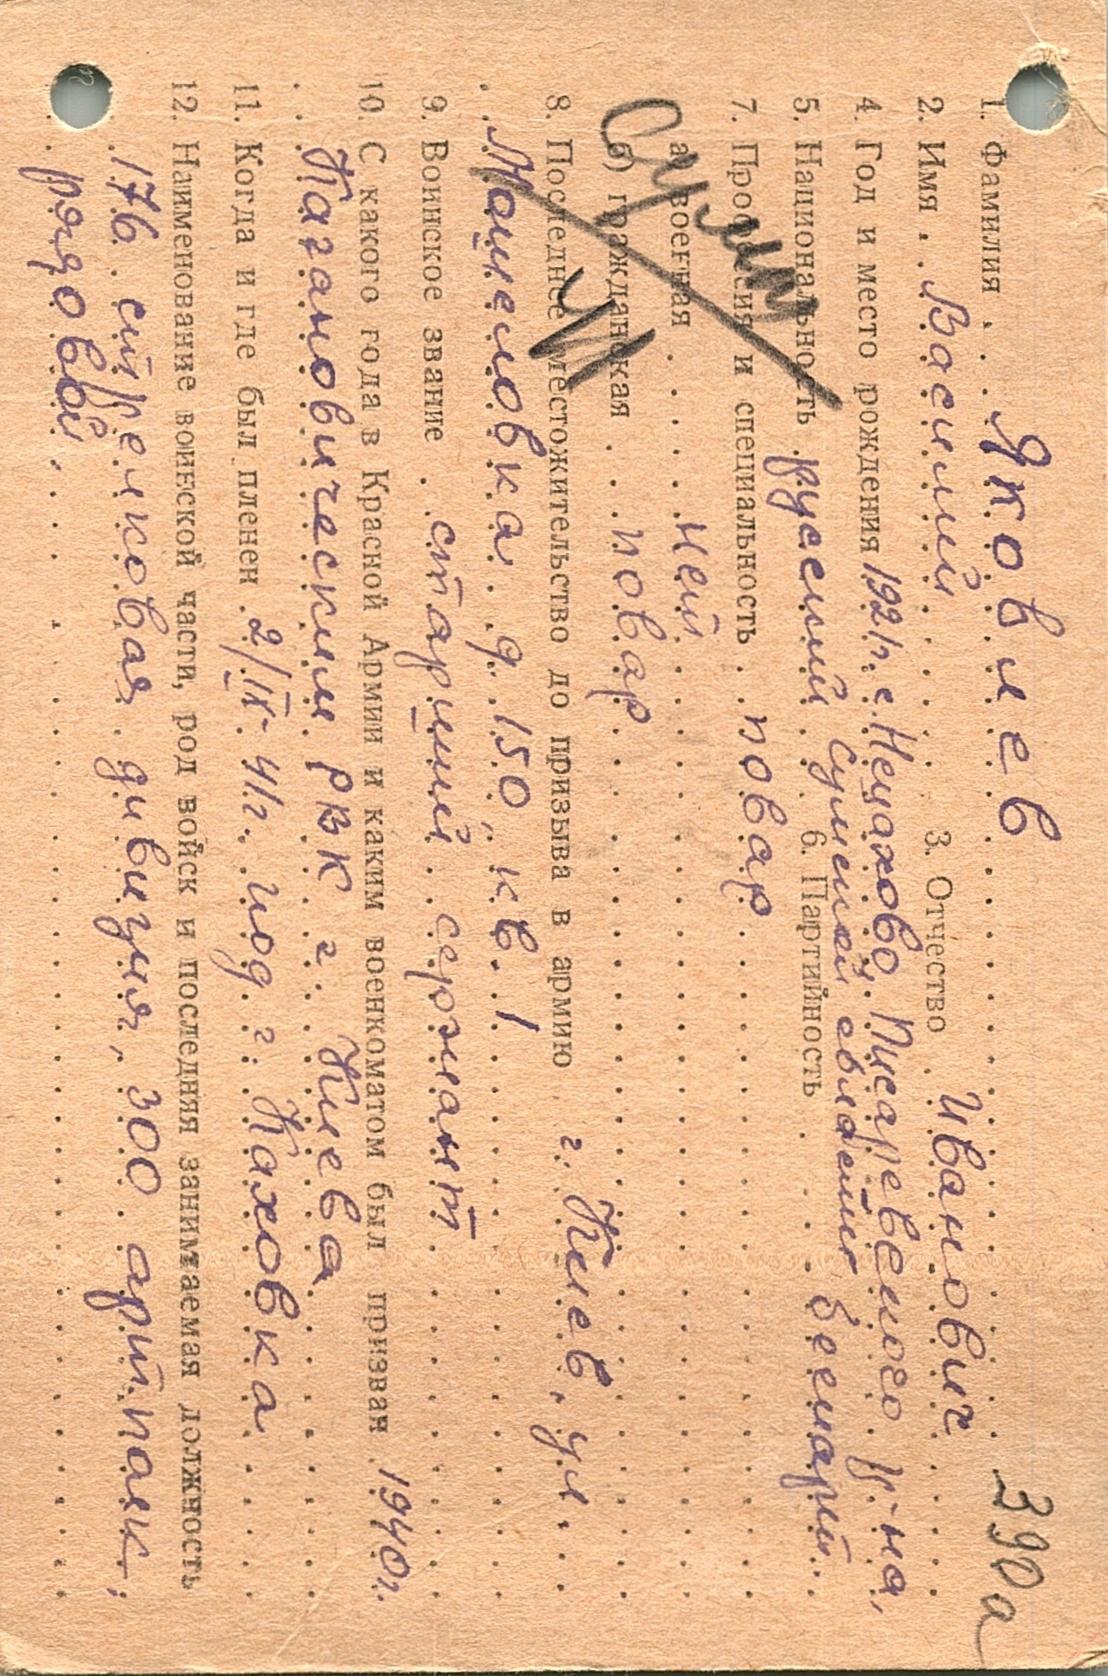 390а
1. Фамилия . . . Яковлев
2. Имя . . Василий 3. Отчество . Иванович
4. Год и место рождения 1921г. с. Нецахово, Писаревского р-на,
Сумской области
5. Национальность русский 6. Партийность беспарт.
7. Профессия и специальность . повар
а) военная . . . . нет
б) гражданская . . повар
Сумы
8. Последнее местожительство до призыва в армию г. Киев, ул.
д. 150, кв. 1
9. Воинское звание . старший сержант
10. С какого года в Красной Армии и каким военкоматом был призван 1940г.
Кагановическим РВК г. Киева
11. Когда и где был пленен . 2/IX- 41г. под г. Каховка
12. Наименование воинской части, род войск и последняя занимаемая должность
176 стрелковая дивизия, 300 артполк,
рядовой